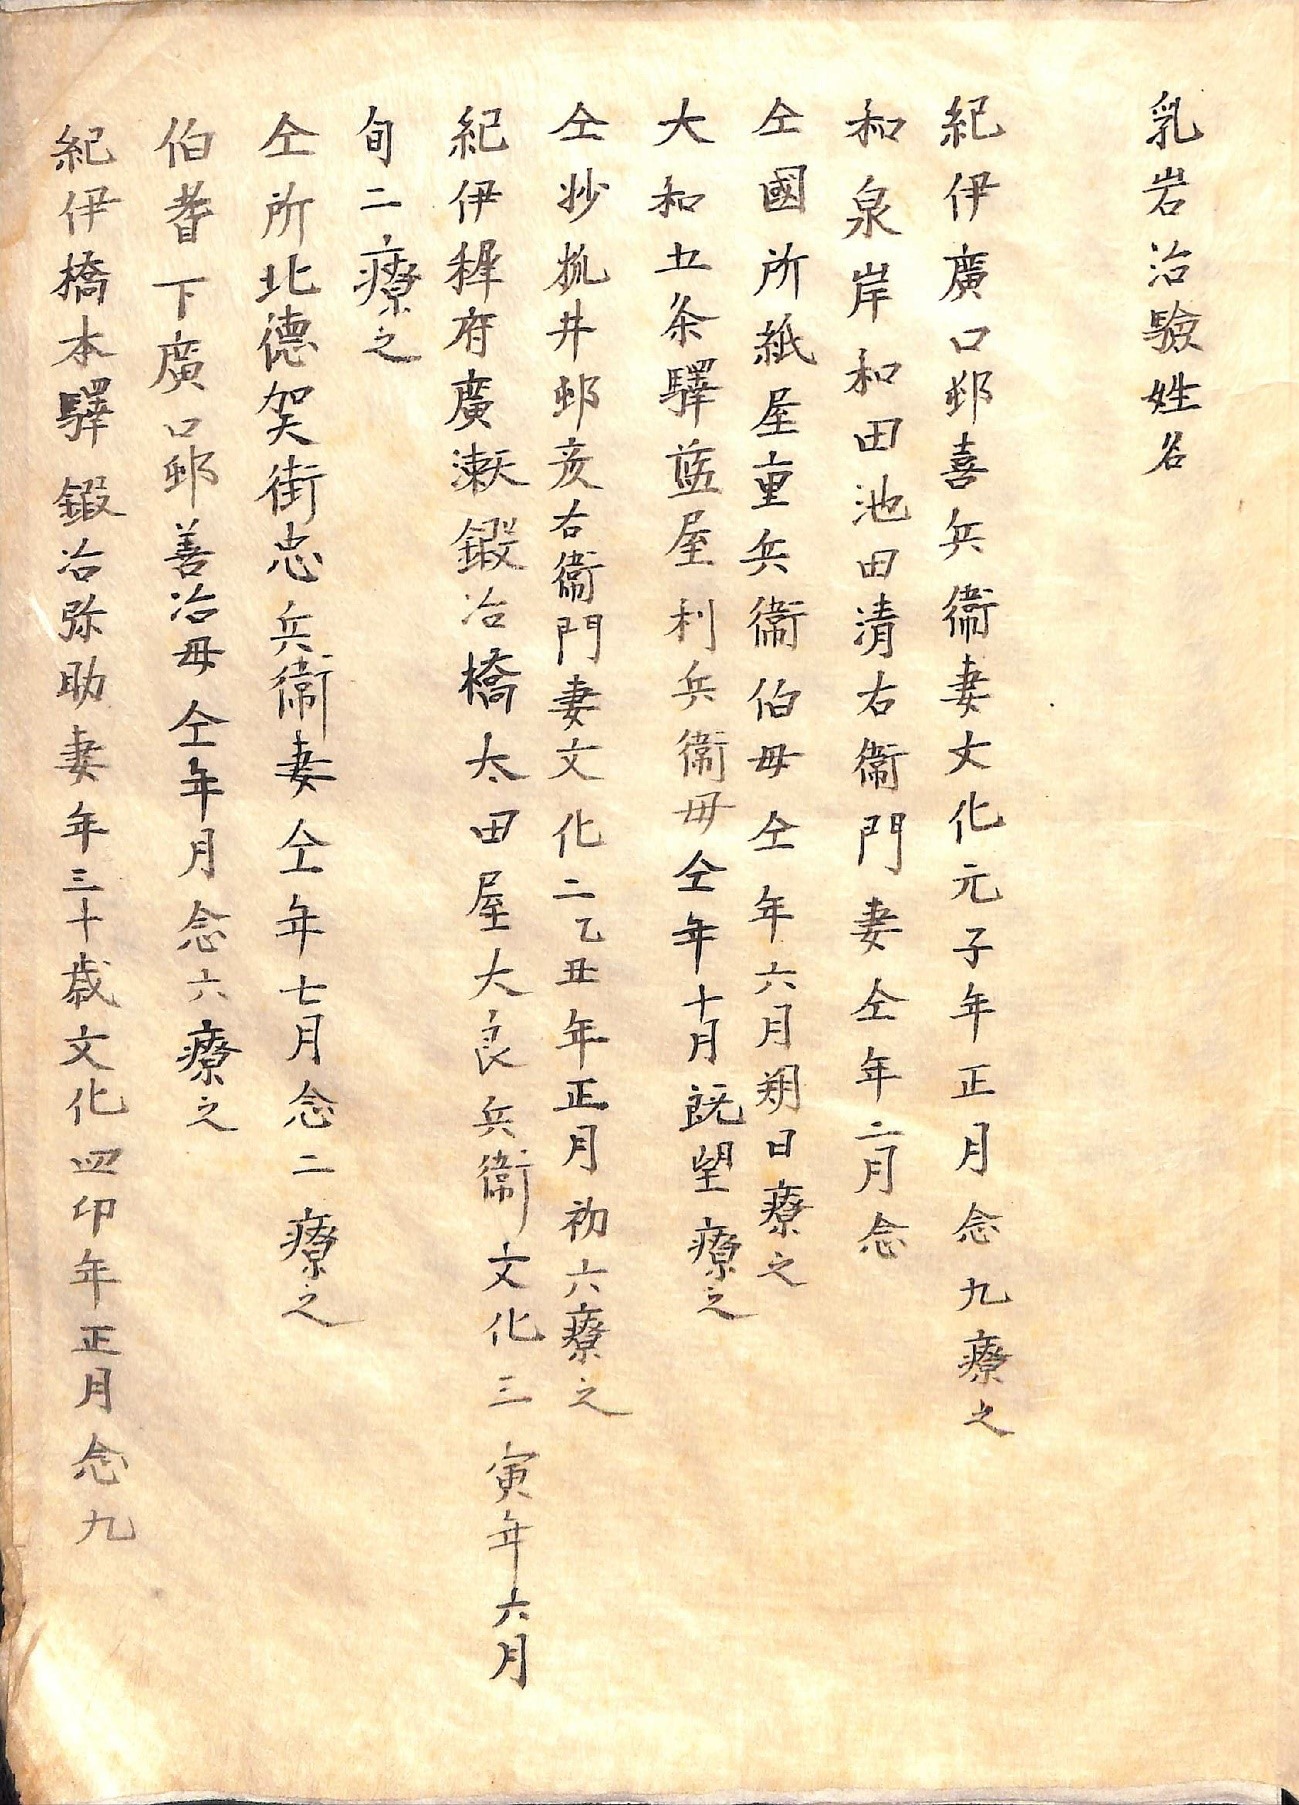 乳岩治驗姓名
紀伊廣口邨喜兵衞妻文化元子年正月念九療之
和泉岸和田池田清右衞門妻仝年二月念
仝國所紙屋重兵衞伯母仝年六月朔日療之
大和五条驛藍屋利兵衞母仝年十月既望療之
仝玅㧌井邨亥右衞門妻文化二乙丑年正月初六療之
紀伊稚府廣瀨鍛冶橋太田屋大良兵衞文化三寅年六月
旬二療之
仝所北德架街忠兵衞妻仝年七月念二療之
伯耆下廣口邨善治母仝年月念六療之
紀伊橋本驛鍛冶弥助妻年三十歳文化四卯年正月念九